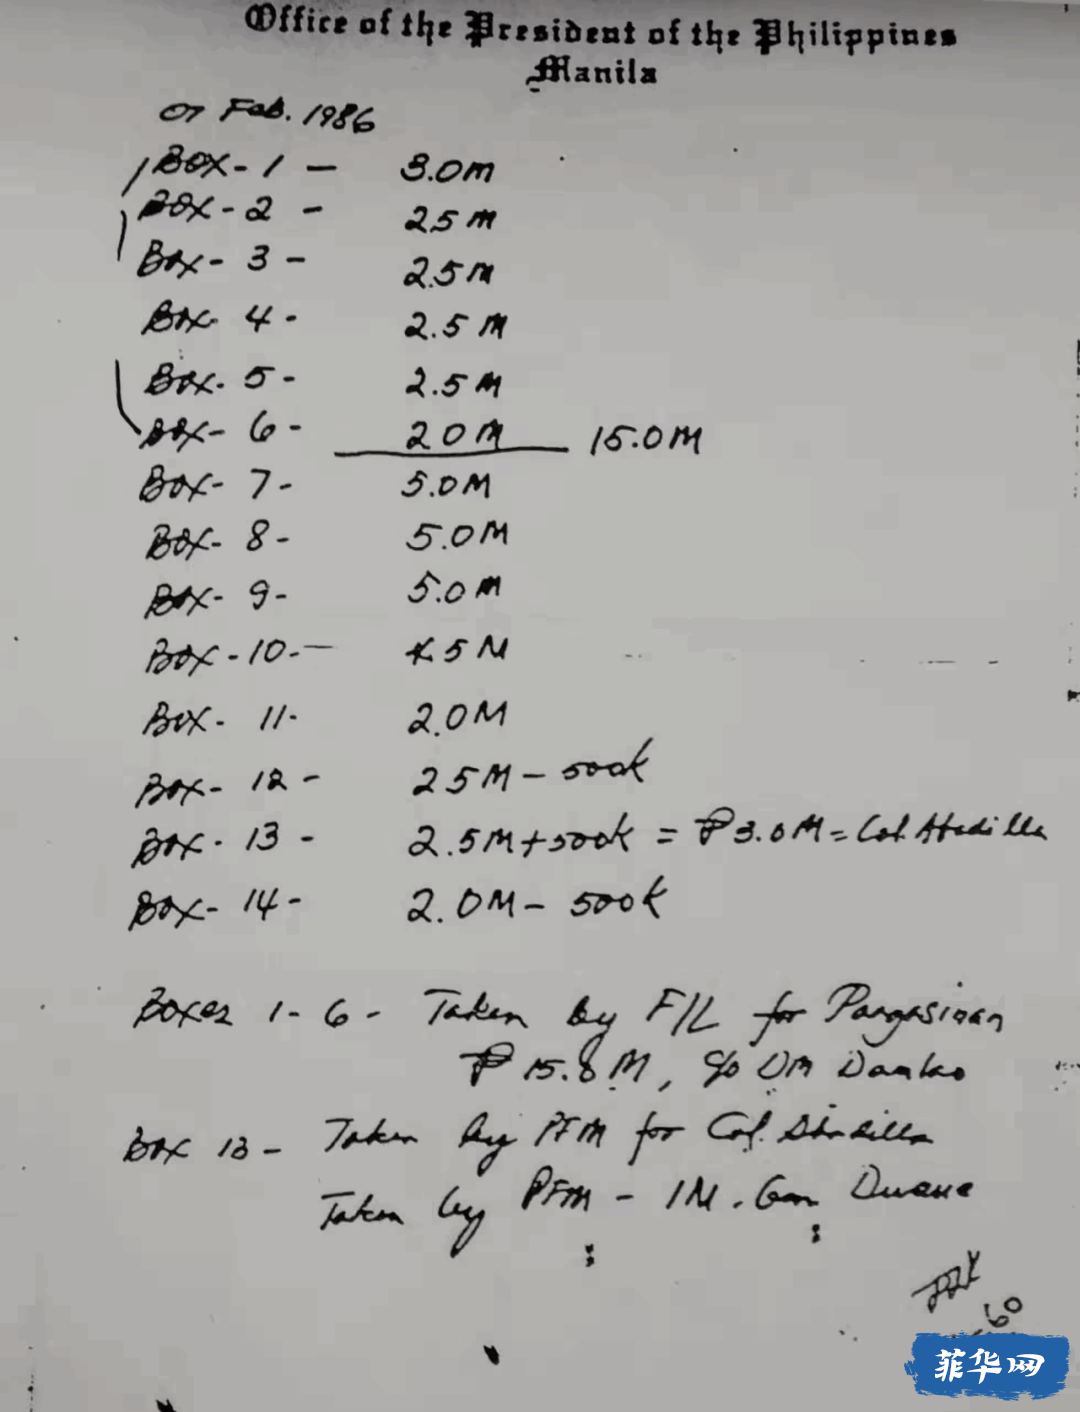 Office of the President of the Philippines
Manila
07 Feb. 1986
Box - 1 - 3.0m
Box - 2 - 2.5 M
Box - 3 - 2.5 M
Box 4 - 2.5 M
Box - 5 - 2.5 M
Box - 6 - 2.0 M 15.0M
Box - 7 - 5.0M
Box - 8 - 5.0M
Box - 9 - 5.0 M
Box - 10 - 5 M
Box - 11 - 2.0M
Box - 12 - 2.5M - 500K
Box - 13 - 2.5M + 500K = ₱3.0M = Col. Abadilla
Box - 14 - 2.0M - 500K
Boxes 1 - 6 - Taken by F/L for Pangasinan
₱ 15.8 M, c/o DM
Box 13 - Taken by PFM for Col. Abadilla
Taken by PFM - 1M. Gen
菲华网